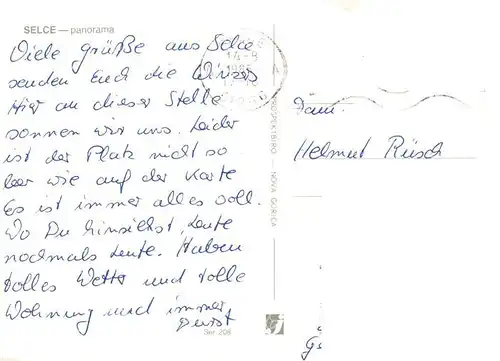 SELCE — panorama
Viele grüße aus Selce
senden Euch die Winzers
Hier an dieser Stelle
sonnen wir uns. Leider
ist der Platz nicht so
leer wie auf der Karte
Es ist immer alles voll.
Wo Du hinsiehst, Leute
nochmals Leute. Haben
tolles Wetter und tolle
Wohnung und immer
Durst
Ser. 208
14-8
1985
NOVA GORICA
Fam.
Helmut Rüsch